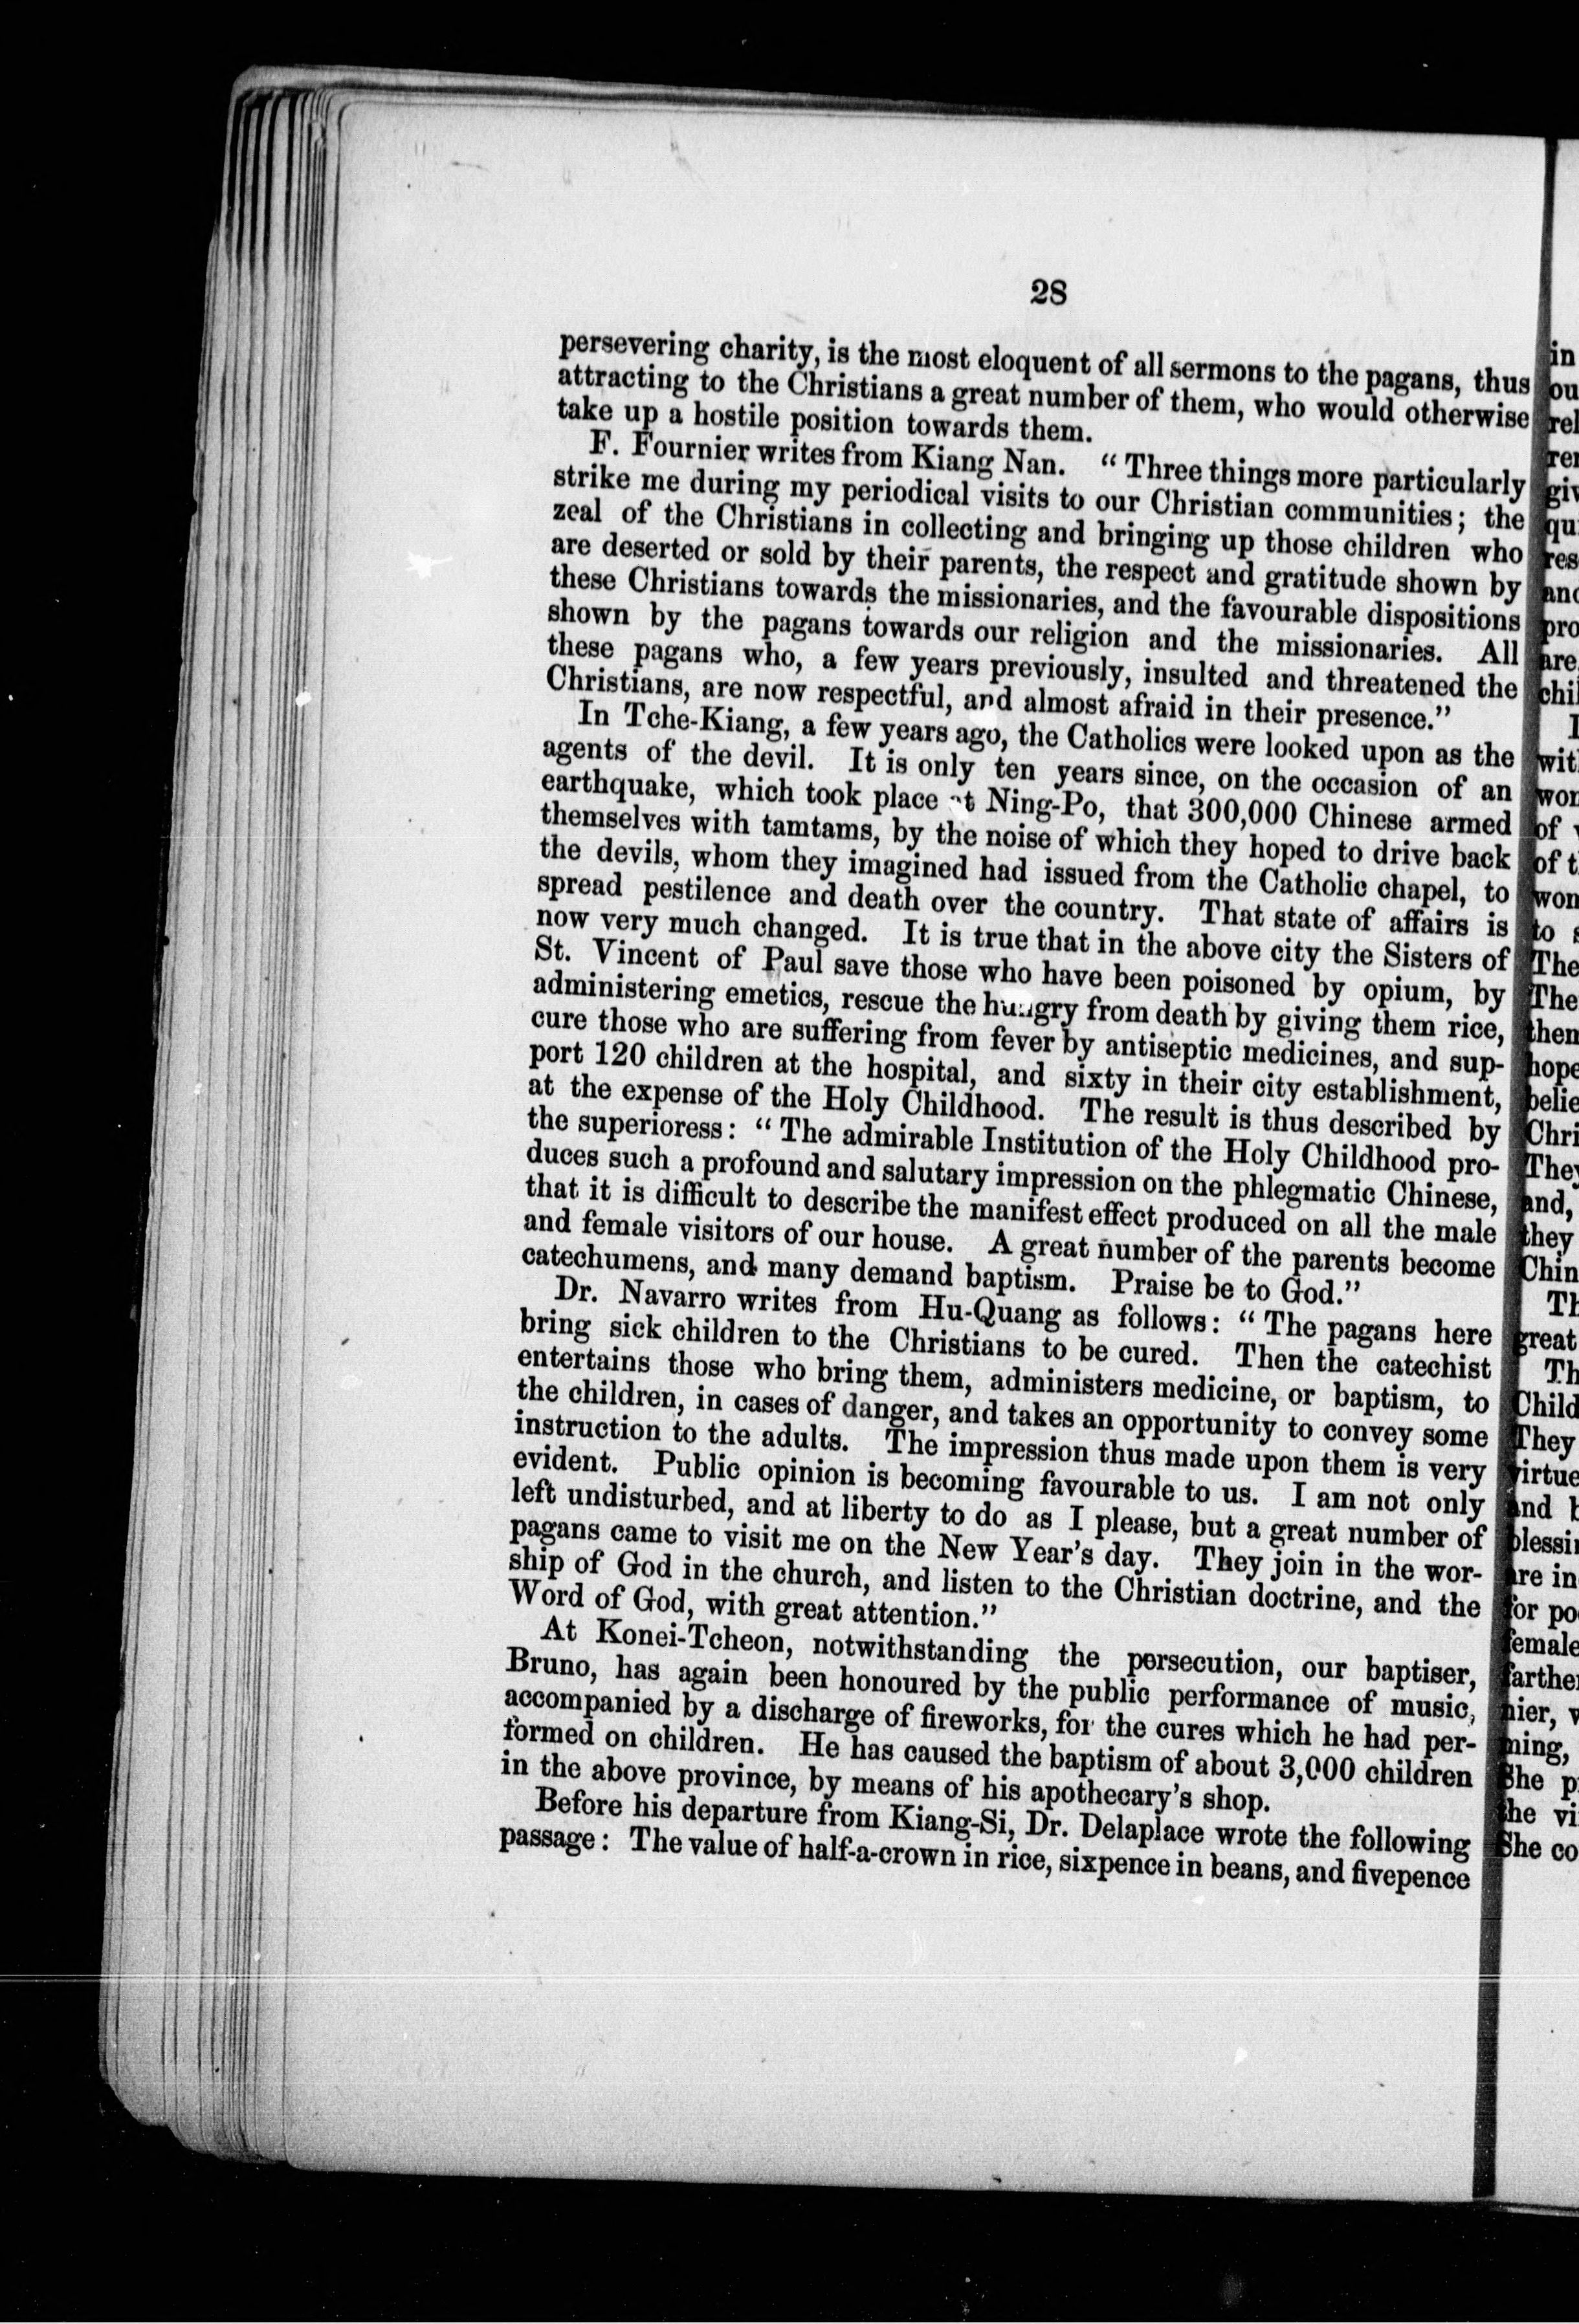 28
persevering charity, is the most eloquent of all sermons to the pagans, thus
attracting to the Christians a great number of them, who would otherwise
take up a hostile position towards them.
F. Fournier writes from Kiang Nan. “Three things more particularly
strike me during my periodical visits to our Christian communities; the
zeal of the Christians in collecting and bringing up those children who
are deserted or sold by their parents, the respect and gratitude shown by
these Christians towards the missionaries, and the favourable dispositions
shown by the pagans towards our religion and the missionaries. All
these pagans who, a few years previously, insulted and threatened the
Christians, are now respectful, and almost afraid in their presence.”
In Tche-Kiang, a few years ago, the Catholics were looked upon as the
agents of the devil. It is only ten years since, on the occasion of an
earthquake, which took place at Ning-Po, that 300,000 Chinese armed
themselves with tamtams, by the noise of which they hoped to drive back
the devils, whom they imagined had issued from the Catholic chapel, to
spread pestilence and death over the country. That state of affairs is
now very much changed. It is true that in the above city the Sisters of
St. Vincent of Paul save those who have been poisoned by opium, by
administering emetics, rescue the hungry from death by giving them rice,
cure those who are suffering from fever by antiseptic medicines, and sup-
port 120 children at the hospital, and sixty in their city establishment,
at the expense of the Holy Childhood. The result is thus described by
the superioress: “The admirable Institution of the Holy Childhood pro-
duces such a profound and salutary impression on the phlegmatic Chinese,
that it is difficult to describe the manifest effect produced on all the male
and female visitors of our house. A great number of the parents become
catechumens, and many demand baptism. Praise be to God.”
Dr. Navarro writes from Hu-Quang as follows: “The pagans here
bring sick children to the Christians to be cured. Then the catechist
entertains those who bring them, administers medicine, or baptism, to
the children, in cases of danger, and takes an opportunity to convey some
instruction to the adults. The impression thus made upon them is very
evident. Public opinion is becoming favourable to us. I am not only
left undisturbed, and at liberty to do as I please, but a great number of
pagans came to visit me on the New Year’s day. They join in the wor-
ship of God in the church, and listen to the Christian doctrine, and the
Word of God, with great attention.”
At Konei-Tcheon, notwithstanding the persecution, our baptiser,
Bruno, has again been honoured by the public performance of music,
accompanied by a discharge of fireworks, for the cures which he had per-
formed on children. He has caused the baptism of about 3,000 children
in the above province, by means of his apothecary’s shop.
Before his departure from Kiang-Si, Dr. Delaplace wrote the following
passage: The value of half-a-crown in rice, sixpence in beans, and fivepence